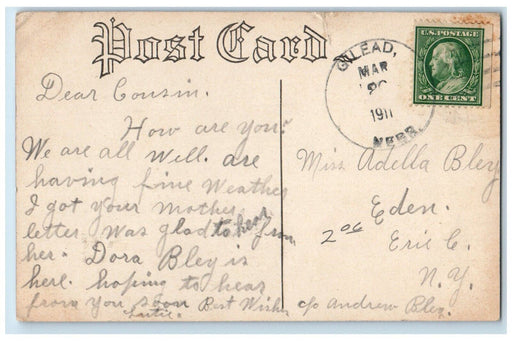 Post Card
GILEAD,
MAR
1911
NEBR.
U.S. POSTAGE
ONE CENT
Dear Cousin.
How are you?
We are all well. are
having fine Weather
I got your Mother
letter. Was glad to hear from
her. Dora Bley is
here. hoping to hear
from you soon Best Wishes
Miss Adella Bley
Eden.
206
Erie C.
N.Y.
c/o Andrew Bley.